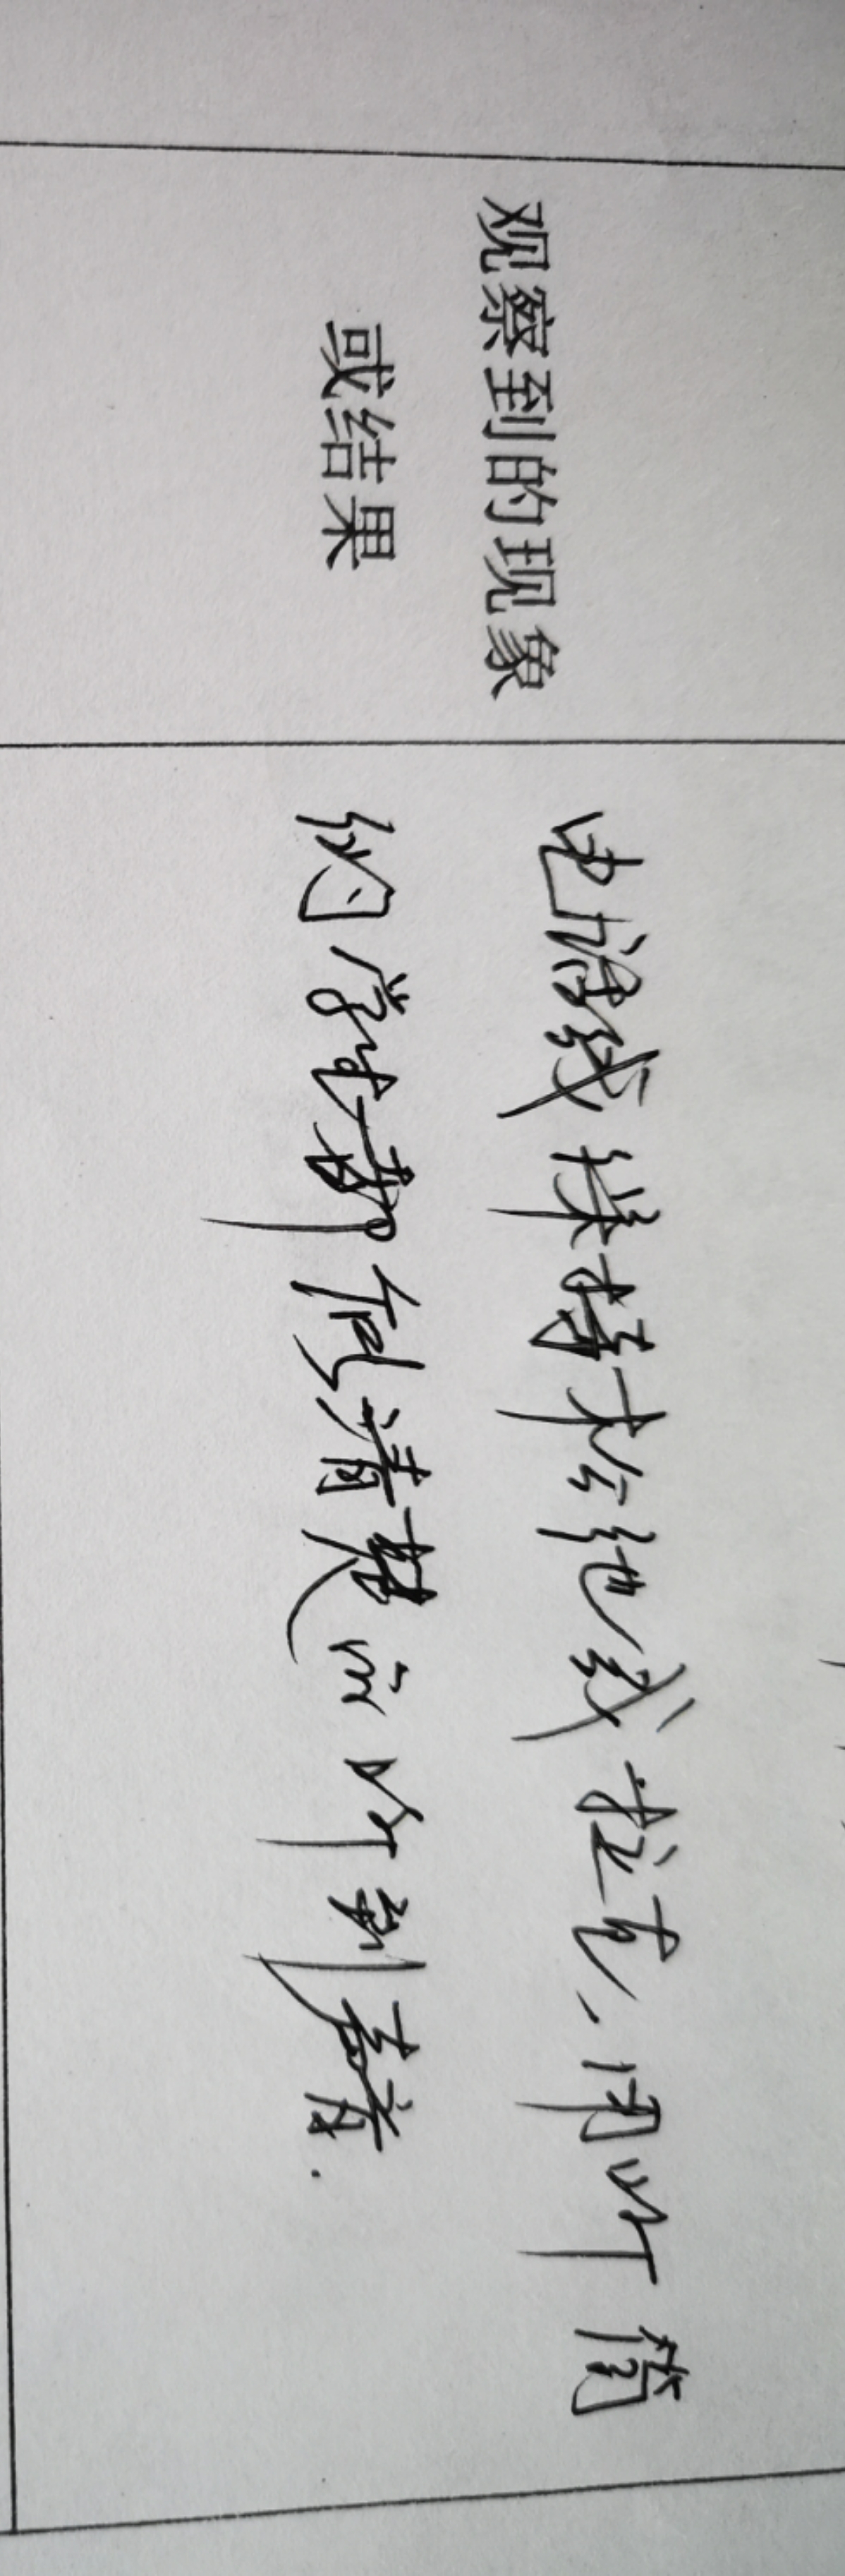 观察到的现象
或结果
电话线样持松绝线拉直、用听筒
的学生都能清楚的听到声音.